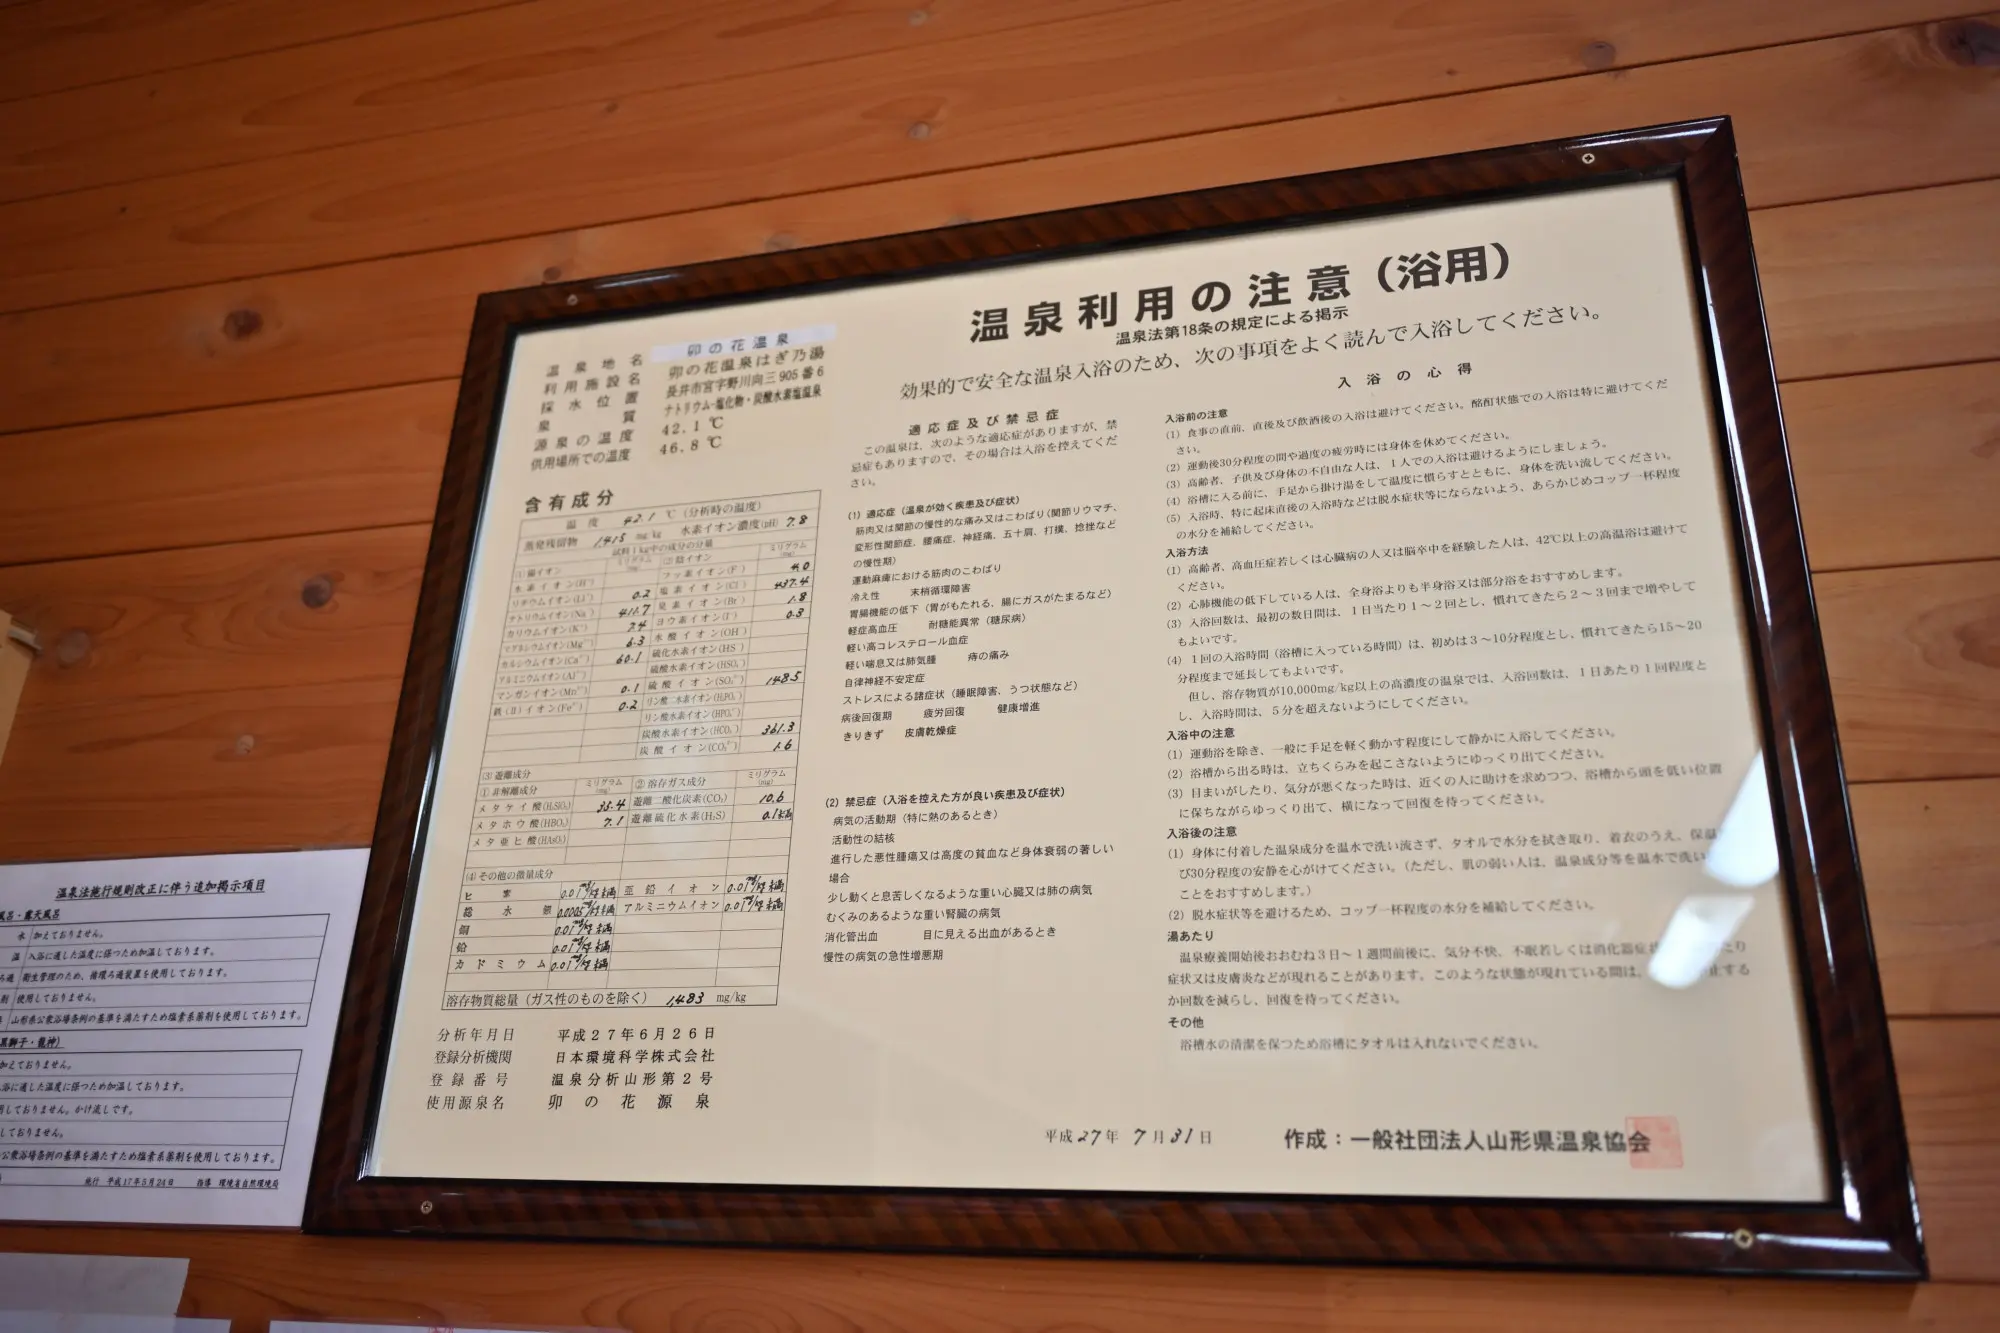 温泉利用の注意（浴用）
温泉法第18条の規定による掲示
効果的で安全な温泉入浴のため、次の事項をよく読んで入浴してください。
温泉地名 卯の花温泉
利用施設名 卯の花温泉はぎ乃湯
採水位置 長井市宮字野川向三905番6
泉質 ナトリウム-塩化物・炭酸水素塩温泉
源泉の温度 42.1℃
供用場所での温度 46.8℃
含有成分
温度 42.1 ℃（分析時の温度）
蒸発残留物 1,415 mg/kg 水素イオン濃度(pH) 7.8
試料1kg中の成分の分量
(1)陽イオン ミリグラム(mg) (2)陰イオン ミリグラム(mg)
水素イオン(H⁺) フッ素イオン(F⁻) 4.0
リチウムイオン(Li⁺) 0.2 塩素イオン(Cl⁻) 437.4
ナトリウムイオン(Na⁺) 411.7 臭素イオン(Br⁻) 1.8
カリウムイオン(K⁺) 7.4 ヨウ素イオン(I⁻) 0.3
マグネシウムイオン(Mg²⁺) 6.3 水酸イオン(OH⁻)
カルシウムイオン(Ca²⁺) 60.1 硫化水素イオン(HS⁻)
アルミニウムイオン(Al³⁺) 硫酸水素イオン(HSO₄⁻)
マンガンイオン(Mn²⁺) 0.1 硫酸イオン(SO₄²⁻) 148.5
鉄(Ⅱ)イオン(Fe²⁺) 0.2 リン酸二水素イオン(H₂PO₄⁻)
リン酸水素イオン(HPO₄²⁻)
炭酸水素イオン(HCO₃⁻) 361.3
炭酸イオン(CO₃²⁻) 1.6
(3)遊離成分
①非解離成分 ミリグラム(mg) ②溶存ガス成分 ミリグラム(mg)
メタケイ酸(H₂SiO₃) 35.4 遊離二酸化炭素(CO₂) 10.6
メタホウ酸(HBO₂) 7.1 遊離硫化水素(H₂S) 0.1未満
メタ亜ヒ酸(HAsO₂)
(4)その他の微量成分
ヒ素 0.01mg/kg未満 亜鉛イオン 0.01mg/kg未満
総水銀 0.0005mg/kg未満 アルミニウムイオン 0.01mg/kg未満
銅 0.01mg/kg未満
鉛 0.01mg/kg未満
カドミウム 0.01mg/kg未満
溶存物質総量（ガス性のものを除く） 1,483 mg/kg
分析年月日 平成27年6月26日
登録分析機関 日本環境科学株式会社
登録番号 温泉分析山形第2号
使用源泉名 卯の花源泉
適応症及び禁忌症
この温泉は、次のような適応症がありますが、禁
忌症もありますので、その場合は入浴を控えてくだ
さい。
(1) 適応症（温泉が効く疾患及び症状）
筋肉又は関節の慢性的な痛み又はこわばり(関節リウマチ、
変形性関節症、腰痛症、神経痛、五十肩、打撲、捻挫など
の慢性期)
運動麻痺における筋肉のこわばり
冷え性 末梢循環障害
胃腸機能の低下（胃がもたれる、腸にガスがたまるなど）
軽症高血圧 耐糖能異常（糖尿病）
軽い高コレステロール血症
軽い喘息又は肺気腫 痔の痛み
自律神経不安定症
ストレスによる諸症状（睡眠障害、うつ状態など）
病後回復期 疲労回復 健康増進
きりきず 皮膚乾燥症
(2) 禁忌症（入浴を控えた方が良い疾患及び症状）
病気の活動期（特に熱のあるとき）
活動性の結核
進行した悪性腫瘍又は高度の貧血など身体衰弱の著しい
場合
少し動くと息苦しくなるような重い心臓又は肺の病気
むくみのあるような重い腎臓の病気
消化管出血 目に見える出血があるとき
慢性の病気の急性増悪期
入浴の心得
入浴前の注意
(1) 食事の直前、直後及び飲酒後の入浴は避けてください。酩酊状態での入浴は特に避けてくだ
さい。
(2) 運動後30分程度の間や過度の疲労時には身体を休めてください。
(3) 高齢者、子供及び身体の不自由な人は、1人での入浴は避けるようにしましょう。
(4) 浴槽に入る前に、手足から掛け湯をして温度に慣らすとともに、身体を洗い流してください。
(5) 入浴時、特に起床直後の入浴時などは脱水症状等にならないよう、あらかじめコップ一杯程度
の水分を補給してください。
入浴方法
(1) 高齢者、高血圧症若しくは心臓病の人又は脳卒中を経験した人は、42℃以上の高温浴は避けて
ください。
(2) 心肺機能の低下している人は、全身浴よりも半身浴又は部分浴をおすすめします。
(3) 入浴回数は、最初の数日間は、1日当たり1～2回とし、慣れてきたら2～3回まで増やして
もよいです。
(4) 1回の入浴時間（浴槽に入っている時間）は、初めは3～10分程度とし、慣れてきたら15～20
分程度まで延長してもよいです。
但し、溶存物質が10,000mg/kg以上の高濃度の温泉では、入浴回数は、1日あたり1回程度と
し、入浴時間は、5分を超えないようにしてください。
入浴中の注意
(1) 運動浴を除き、一般に手足を軽く動かす程度にして静かに入浴してください。
(2) 浴槽から出る時は、立ちくらみを起こさないようにゆっくり出てください。
(3) 目まいがしたり、気分が悪くなった時は、近くの人に助けを求めつつ、浴槽から頭を低い位置
に保ちながらゆっくり出て、横になって回復を待ってください。
入浴後の注意
(1) 身体に付着した温泉成分を温水で洗い流さず、タオルで水分を拭き取り、着衣のうえ、保温
び30分程度の安静を心がけてください。（ただし、肌の弱い人は、温泉成分等を温水で洗い
ことをおすすめします。）
(2) 脱水症状等を避けるため、コップ一杯程度の水分を補給してください。
湯あたり
温泉療養開始後おおむね3日～1週間前後に、気分不快、不眠若しくは消化器症状 たり
症状又は皮膚炎などが現れることがあります。このような状態が現れている間は、 止する
か回数を減らし、回復を待ってください。
その他
浴槽水の清潔を保つため浴槽にタオルは入れないでください。
平成27年7月31日 作成：一般社団法人山形県温泉協会
温泉法施行規則改正に伴う追加掲示項目
風呂・露天風呂
水 加えておりません。
温 入浴に適した温度に保つため加温しております。
ろ過 衛生管理のため、循環ろ過装置を使用しております。
剤 使用しておりません。
山形県公衆浴場条例の基準を満たすため塩素系薬剤を使用しております。
黒獅子・龍神)
加えておりません。
入浴に適した温度に保つため加温しております。
用しておりません。かけ流しです。
しておりません。
公衆浴場条例の基準を満たすため塩素系薬剤を使用しております。
施行 平成17年5月24日 指導 環境省自然環境局